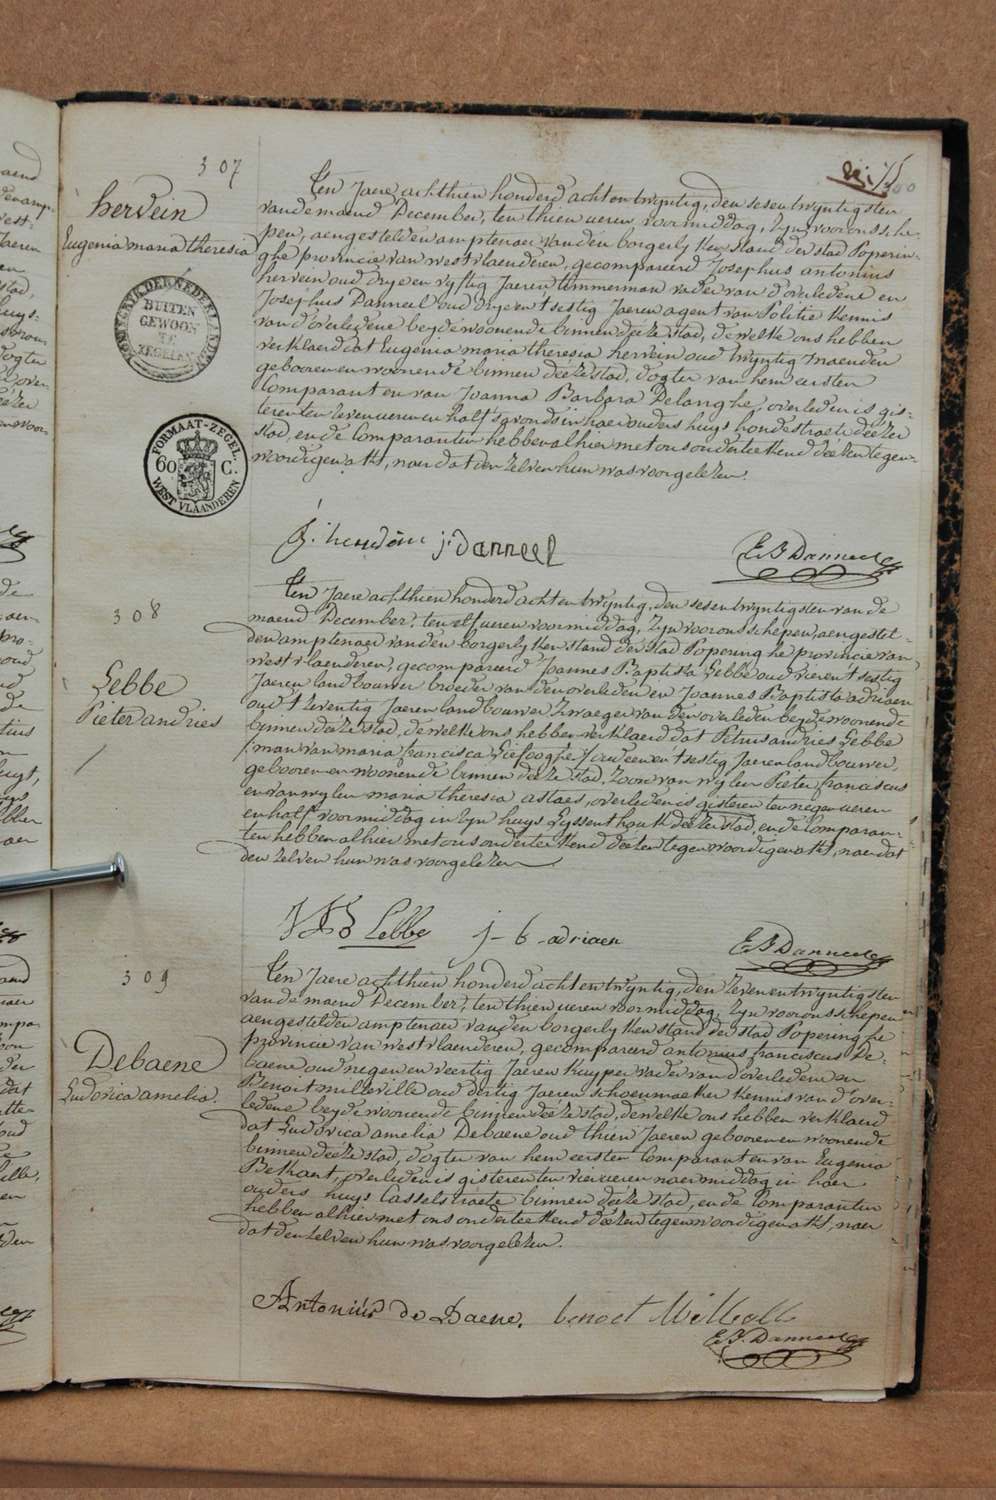 307
hervein
Eugenia maria theresia
KONINGRYK DER NEDERLANDEN
BUITEN
GEWOON
TE
ZEGELEN
FORMAAT-ZEGEL
60 C.
WEST VLAANDEREN
Ten Jaere achthien honderd achtentwyntig, den sesentwyntigsten
van de maend December, ten thien ueren voormiddag, zyn voor ons sche-
pen, aengestelden amptenaer van den borgerlyken stand der stad Poperin-
ghe provincie van westvlaenderen, gecompareerd Josephus antonius
hervein oud drye en vyftig Jaeren timmerman vader van d'overledene en
Josephus Danneel oud drye en tsestig Jaeren agent van Politie kennis
van d'overledene beyde woonende binnen deéze stad, dewelke ons hebben
verklaerd dat Eugenia maria theresia hervein oud twyntig maenden
gebooren en woonende binnen deéze stad, dogter van hem eersten
Comparant en van Joanna Barbara Delanghe, overleden is gis-
teren ten zeven ueren en half 's avonds in haer ouders huys hondestraete deézer
stad, en de Comparanten hebben alhier met ons onderteekend deézen tegen-
woordigen akt, naer dat den zelven hun was voorgelezen.
j. danneel
E. J. Danneel
308
Lebbe
Pieter andries
Ten Jaere achthien honderd achtentwyntig, den sesentwyntigsten van de
maend December, ten elf ueren voormiddag, zyn voor ons schepen, aengestel-
den amptenaer van den borgerlyken stand der stad Poperinghe provincie van
westvlaenderen, gecompareerd Joannes Baptista Lebbe oud vier en tsestig
Jaeren landbouwer broeder van den overleden en Joannes Baptiste adriaen
oud tzeventig Jaeren landbouwer zwaeger van den overleden beyde woonende
binnen deéze stad, dewelke ons hebben verklaerd dat Petrus andries Lebbe
/:man van maria francisca Liefooghe:/ oud een en tsestig Jaeren landbouwer,
gebooren en woonende binnen deéze stad, zoon van wylen Pieter franciscus
en van wylen maria theresia astaes, overleden is gisteren ten negen ueren
en half voormiddag in zyn huys Lyssenthouk deézer stad, en de Comparan-
ten hebben alhier met ons onderteekend deézen tegenwoordigen akt, naer dat
den zelven hun was voorgelezen
Lebbe
j-b-adriaen
E. J. Danneel
309
Debaene
Ludovica amelia.
Ten Jaere achthien honderd achtentwyntig, den zevenentwyntigsten
van de maend December, ten thien ueren voormiddag, zyn voor ons schepen
aengestelden amptenaer van den borgerlyken stand der stad Poperinghe
provincie van westvlaenderen, gecompareerd antonius franciscus De-
baene oud negen en veertig Jaeren kuyper vader van d'overledene en
Benoit milleville oud dertig Jaeren schoenmaeker kennis van d'over-
ledene beyde woonende binnen deéze stad, dewelke ons hebben verklaerd
dat Ludovica amelia Debaene oud thien Jaeren gebooren en woonende
binnen deéze stad, dogter van hem eersten Comparant en van Eugenia
Bekaert, overleden is gisteren ten vier ueren naermiddag in haer
ouders huys Casselstraete binnen deéze stad, en de Comparanten
hebben alhier met ons onderteekend deézen tegenwoordigen akt, naer
dat den zelven hun was voorgelezen.
Antoniüs de Baene.
benoet
E. J. Danneel